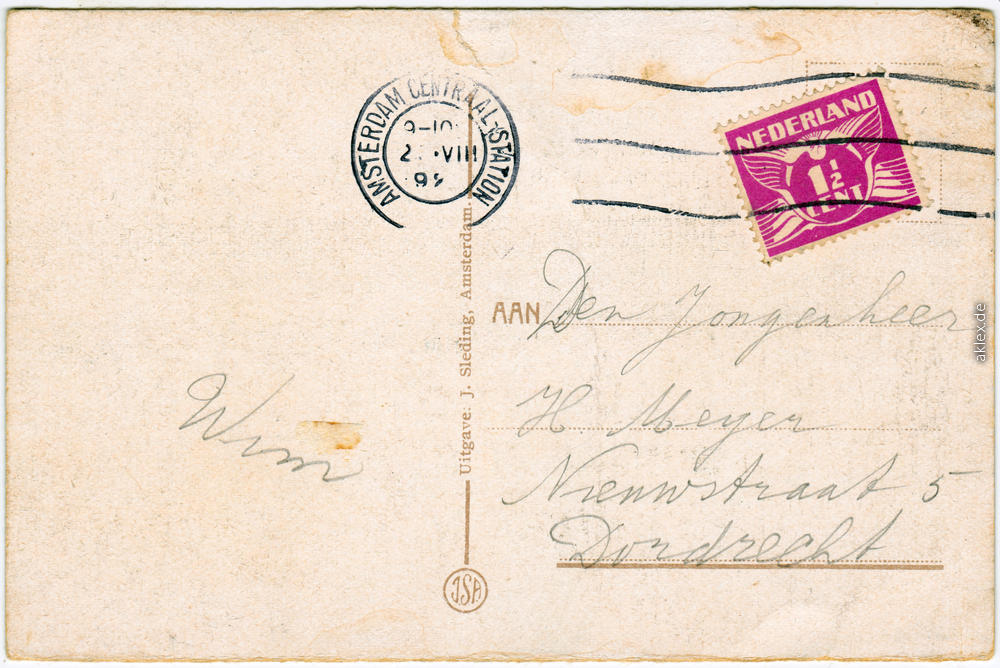 AMSTERDAM CENTRAAL-STATION
VIII
NEDERLAND
1½
CENT
Uitgave: J. Sleding, Amsterdam.
AAN Den Jongenheer
H. Meyer
Nieuwstraat 5
Dordrecht
Wim
JSA
aklex.de